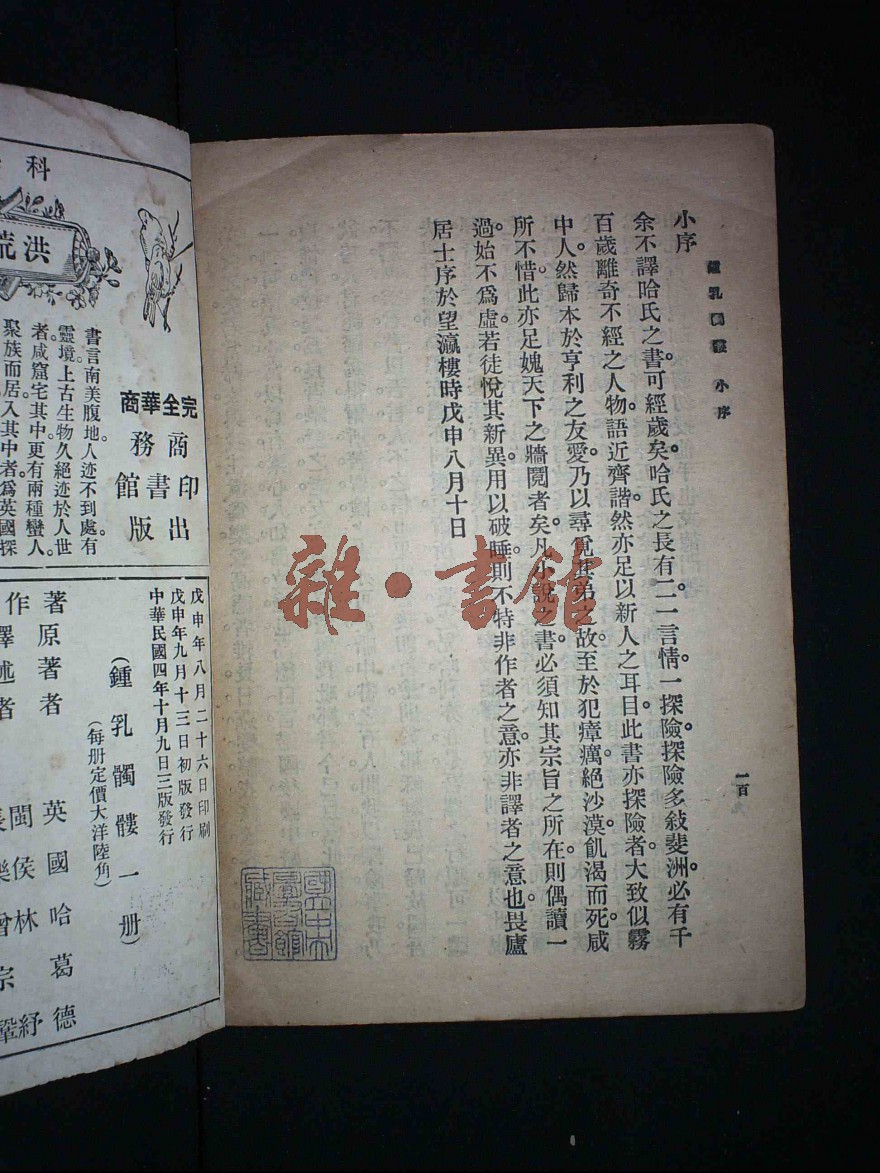 鍾乳髑髏 小序
小序
余不譯哈氏之書。可經歲矣。哈氏之長有二。一言情。一探險。探險多敍斐洲。必有千
百歲離奇不經之人物。語近齊諧。然亦足以新人之耳目。此書亦探險者。大致似霧
中人。然歸本於亨利之友愛。乃以尋覓其弟之故。至於犯瘴癘。絕沙漠。飢渴而死。咸
所不惜。此亦足媿天下之牆鬩者矣。凡小說之書。必須知其宗旨之所在。則偶讀一
過。始不爲虛。若徒悅其新異。用以破睡。則不特非作者之意。亦非譯者之意也。畏廬
居士序於望瀛樓。時戊申八月十日
一百
雜·書館
國立中央
圖書館
藏書
科
洪荒
書言南美腹地。人迹不到處。有
靈境。上古生物久絕迹於人世
者。咸窟宅其中。更有兩種蠻人。
聚族而居。入其中者。爲英國探
完全華商
商務印書館出版
戊申年八月二十六日印刷
戊申年九月十三日初版發行
中華民國四年十月九日三版發行
(鍾乳髑髏一册)
(每册定價大洋陸角)
原著者 英國哈葛德
譯述者 閩侯林紓
長樂曾宗鞏